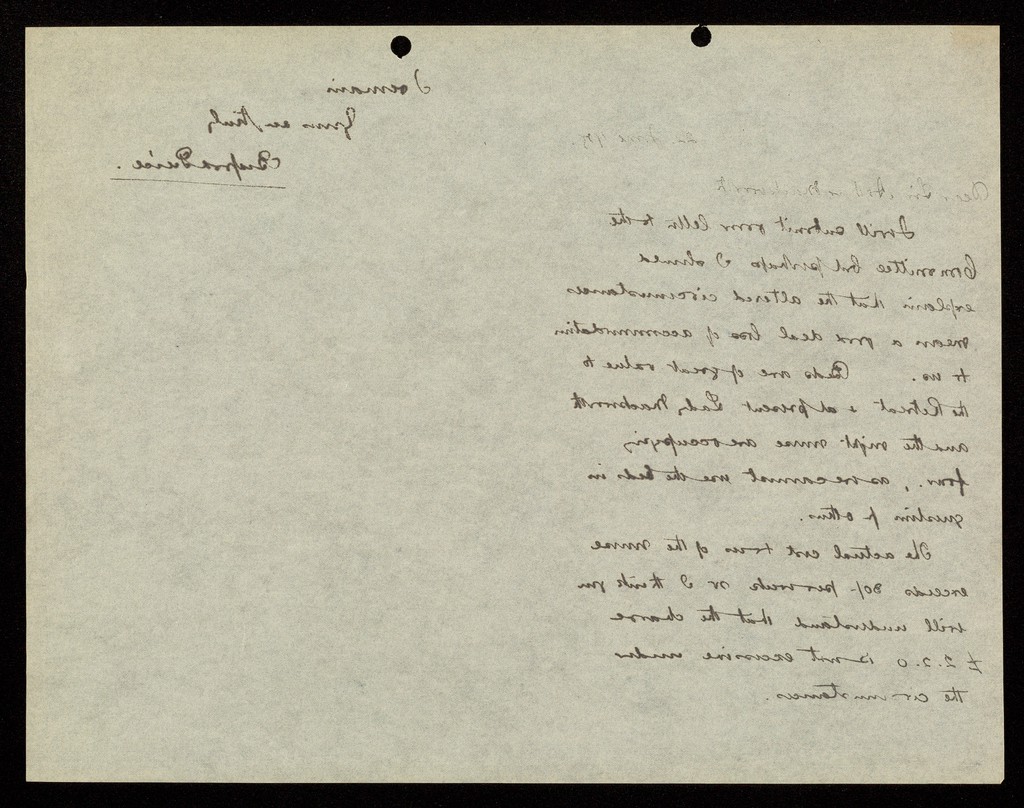 22 June 1915.
Dear Sir Mackworth
I will submit your letter to the
Committee but perhaps I should
explain that the altered circumstances
mean a good deal loss of accommodation
to us. Beds are of great value to
the Retreat & at present Lady Mackworth
and the night nurse are occupying
four, as we cannot use the beds in
question for others.
The actual cost to us of the nurse
exceeds 30/- per week so I think you
will understand that the charge
£2.2.0 is not excessive under
the circumstances.
I remain
Yours very truly
Bedford Pierce.